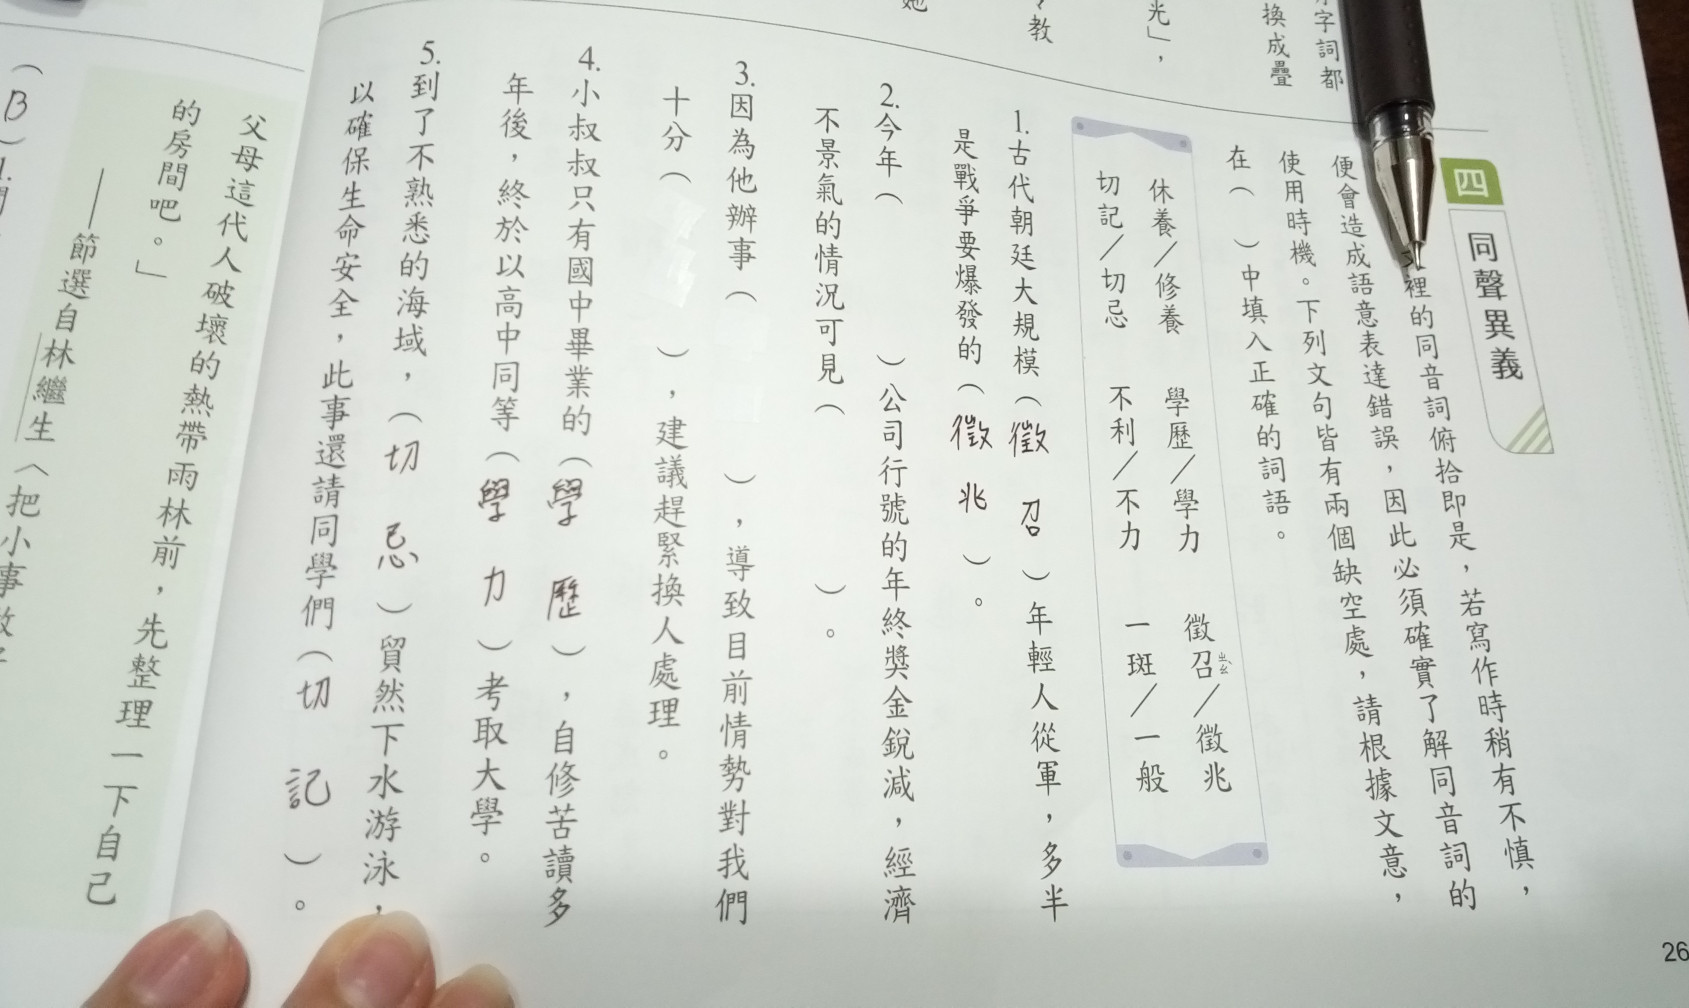 字詞都
換成疊
光」，
教
四 同聲異義
裡的同音詞俯拾即是，若寫作時稍有不慎，
便會造成語意表達錯誤，因此必須確實了解同音詞的
使用時機。下列文句皆有兩個缺空處，請根據文意，
在（　）中填入正確的詞語。
休養／修養　學歷／學力　徵召ㄓㄠˋ／徵兆
切記／切忌　不利／不力　一斑／一般
1.古代朝廷大規模（徵召）年輕人從軍，多半
是戰爭要爆發的（徵兆）。
2.今年（　）公司行號的年終獎金銳減，經濟
不景氣的情況可見（　）。
3.因為他辦事（　），導致目前情勢對我們
十分（　），建議趕緊換人處理。
4.小叔叔只有國中畢業的（學歷），自修苦讀多
年後，終於以高中同等（學力）考取大學。
5.到了不熟悉的海域，（切忌）貿然下水游泳，
以確保生命安全，此事還請同學們（切記）。
26
父母這代人破壞的熱帶雨林前，先整理一下自己
的房間吧。」
——節選自林繼生〈把小事做
（B）1.